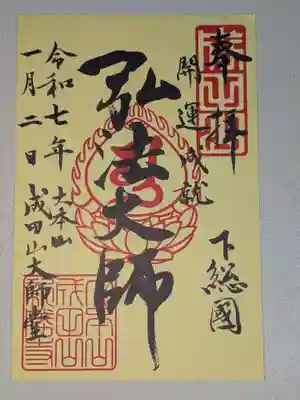 奉拝
開運成就
下総國
弘法大師
大本山
成田山大師堂
令和七年
一月二日